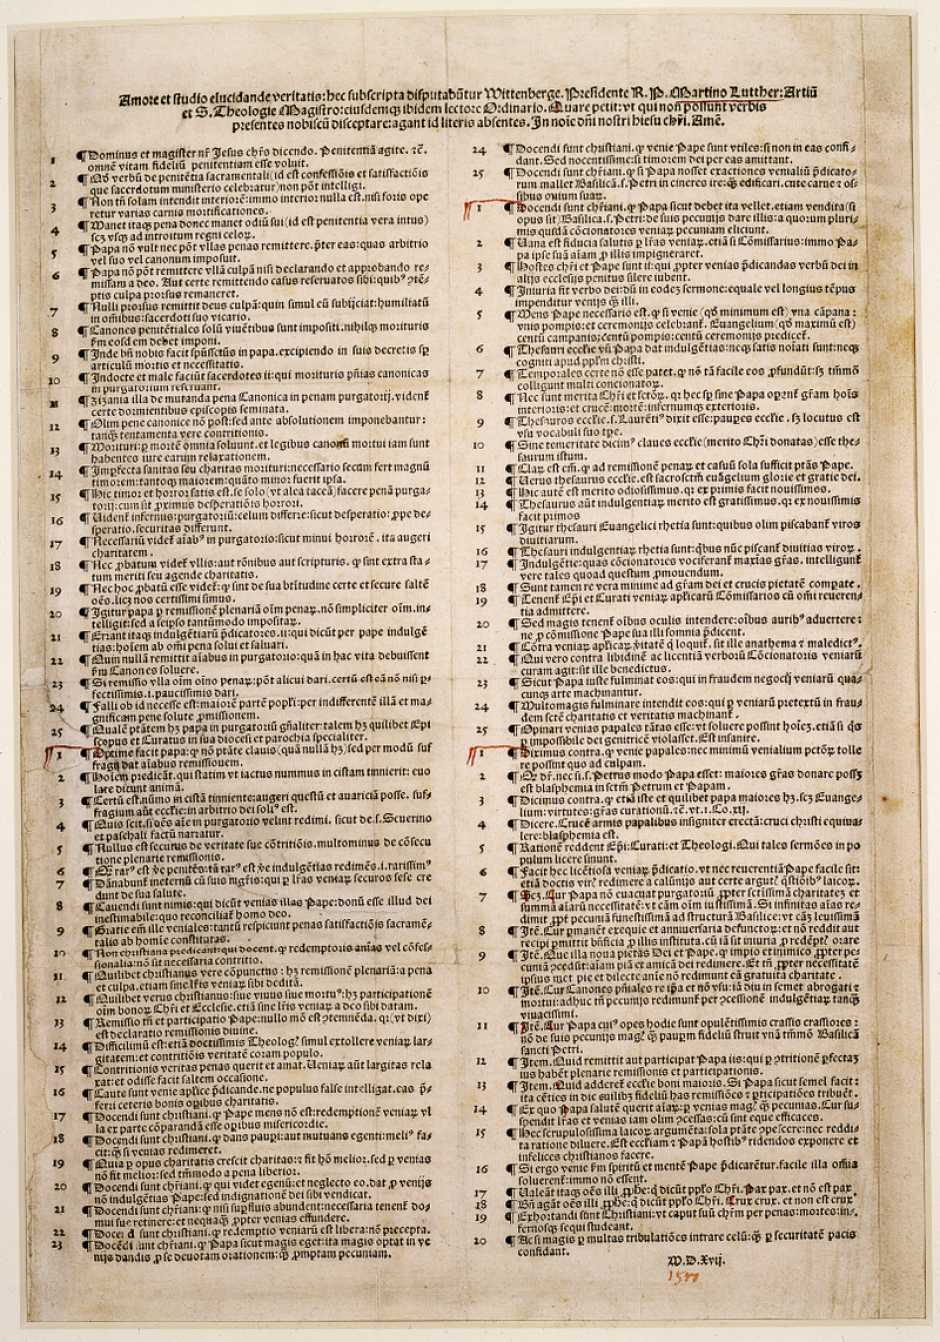 Amore et studio elucidande veritatis: hec subscripta disputabũtur Wittenberge. Presidente R. P. Martino Lutther: Artiũ
et S. Theologie Magistro: eiusdemqʒ ibidem lectore Ordinario. Quare petit: vt qui non possunt verbis
presentes nobiscũ disceptare: agant id literis absentes. In noĩe dñi nostri hiesu chr̃i. Amẽ.
1 ¶ Dominus et magister nr̃ Jesus chr̃s dicendo. Penitentiã agite. ⁊c̃.
omnẽ vitam fideliũ penitentiam esse voluit.
2 ¶ Qđ verbũ de penitẽtia sacramentali (id est confessiõis et satisfactiõis
que sacerdotum ministerio celebratur) non põt intelligi.
3 ¶ Non tñ solam intendit interiorẽ: immo interior nulla est. nisi foris ope
retur varias carnis mortificationes.
4 ¶ Manet itaqʒ pena donec manet odiũ sui (id est penitentia vera intus)
scʒ vsqʒ ad introitum regni celoꝝ.
5 ¶ Papa nõ vult nec põt vllas penas remittere. p̃ter eas: quas arbitrio
vel suo vel canonum imposuit.
6 ¶ Papa nõ põt remittere vllã culpã nisi declarando et approbando re-
missam a deo. Aut certe remittendo casus reseruatos sibi: quibꝰ ↄtẽ-
ptis culpa prorsus remaneret.
7 ¶ Nulli prorsus remittit deus culpã: quin simul eũ subijciat: humiliatũ
in oĩbus: sacerdoti suo vicario.
8 ¶ Canones penitẽtiales solũ viuẽtibus sunt impositi. nihilqʒ morituris
ẜm eosdem debet imponi.
9 ¶ Inde bñ nobis facit spũssctũs in papa. excipiendo in suis decretis sꝑ
articulũ mortis et necessitatis.
10 ¶ Indocte et male faciũt sacerdotes ii: qui morituris pñias canonicas
in purgatorium reseruant.
11 ¶ Zizania illa de mutanda pena Canonica in penam purgatorij. vident̃
certe dormientibus episcopis seminata.
12 ¶ Olim pene canonice nõ post: sed ante absolutionem imponebantur:
tanqʒ̃ tentamenta vere contritionis.
13 ¶ Morituri: ꝑ mortẽ omnia soluunt. et legibus canonũ mortui iam sunt
habentes iure earum relaxationem.
14 ¶ Imꝑfecta sanitas seu charitas morituri: necessario secum fert magnũ
timorem: tantoqʒ maiorem: quãto minor fuerit ipsa.
15 ¶ Hic timor et horror satis est. se solo (vt alia taceã) facere penã purga-
torij: cum sit ꝓximus desperatiõis horrori.
16 ¶ Videnť infernus: purgatoriũ: celum differre: sicut desperatio: ꝓpe de-
speratio. securitas differunt.
17 ¶ Necessariũ videť aĩabꝰ in purgatorio: sicut minui horrorẽ. ita augeri
charitatem.
18 ¶ Nec ꝓbatum videť vllis: aut rõnibus aut scripturis. ꝙ sint extra sta-
tum meriti seu agende charitatis.
19 ¶ Nec hoc ꝓbatũ esse videť: ꝙ sint de sua btĩtudine certe et secure saltẽ
oẽs. licʒ nos certissimi simus.
20 ¶ Igitur papa ꝑ remissionẽ plenariã oĩm penaꝝ. nõ simpliciter oĩm. in-
telligit: sed a seipso tantũmodo impositaꝝ.
21 ¶ Errant itaqʒ indulgẽtiarũ p̃dicatores. ii: qui dicũt per pape indulgẽ
tias: hoĩem ab oĩ pena solui et saluari.
22 ¶ Quin nullã remittit aĩabus in purgatorio: quã in hac vita debuissent
ẜm Canones soluere.
23 ¶ Si remissio vlla oĩm oĩno penaꝝ: põt alicui dari. certũ est eã nõ nisi ꝑ-
fectissimis. i. paucissimis dari.
24 ¶ Falli ob id necesse est: maiorẽ partẽ popl̃i: per indifferentẽ illã et ma-
gnificam pene solute ꝓmissionem.
25 ¶ Qualẽ p̃tatem hʒ papa in purgatoriũ gñaliter: talem hʒ quilibet Epi
scopus et Curatus in sua diocesi et parochia specialiter.
1 ¶ Optime facit papa: ꝙ nõ p̃tate clauis (quã nullã hʒ) sed per modũ suf
fragij dat aĩabus remissionem.
2 ¶ Hoĩem predicãt. qui statim vt iactus nummus in cistam tinnierit: euo
lare dicunt animã.
3 ¶ Certũ est. nũmo in cistã tinniente: augeri questũ et auariciã posse. suf-
fragium aũt eccl̃ie: in arbitrio dei solꝰ est.
4 ¶ Quis scit. si oẽs aĩe in purgatorio velint redimi. sicut de. s. Seuerino
et paschali factũ narratur.
5 ¶ Nullus est securus de veritate sue cõtritiõis. multominus de cõsecu
tione plenarie remissionis.
6 ¶ Qꝫ rarꝰ est ṽe penitẽs: tã rarꝰ est ṽe indulgẽtias redimẽs. i. rarissimꝰ
7 ¶ Dãnabunť ineternũ cũ suis mgr̃is: qui ꝑ lr̃as veniaꝝ securos sese cre
dunt de sua salute.
8 ¶ Cauendi sunt nimis: qui dicũt venias illas Pape: donũ esse illud dei
inestimabile: quo reconciliať homo deo.
9 ¶ Gratie em̃ ille veniales: tantũ respiciunt penas satisfactiõis sacramẽ-
talis ab homĩe constitutas.
10 ¶ Non christiana predicant: qui docent. ꝙ redemptoris animas vel cõfes-
sionalia: nõ sit necessaria contritio.
11 ¶ Quilibet christianus vere cõpunctus: hʒ remissionẽ plenariã: a pena
et culpa. etiam sine lr̃is veniaꝝ sibi debitã.
12 ¶ Quilibet verus christianus: siue viuus siue mortuꝰ: hʒ participationẽ
oĩm bonoꝝ Chr̃i et Ecclesie. etiã sine lr̃is veniaꝝ a deo sibi datam.
13 ¶ Remissio tñ et participatio Pape: nullo mõ est ↄtemnẽda. qꝛ (vt dixi)
est declaratio remissionis diuine.
14 ¶ Difficilimũ est: etiã doctissimis Theologꝭ simul extollere veniaꝝ lar-
gitatem: et contritiõis veritatẽ coram populo.
15 ¶ Contritionis veritas penas querit et amat. Veniaꝝ aũt largitas rela
xat: et odisse facit saltem occasione.
16 ¶ Caute sunt venie apl̃ice p̃dicande. ne populus false intelligat. eas p̃-
ferri ceteris bonis oꝑibus charitatis.
17 ¶ Docendi sunt christiani. ꝙ Pape mens nõ est: redemptionẽ veniaꝝ vl
la ex parte cõparandã esse oꝑibus misericordie.
18 ¶ Docendi sunt christiani. ꝙ dans pauꝑi: aut mutuans egenti: meliꝰ fa-
cit: qʒ̃ si venias redimeret.
19 ¶ Quia ꝑ opus charitatis crescit charitas: ⁊ fit hõ melior. sed ꝑ venias
nõ fit melior: sed tm̃modo a pena liberior.
20 ¶ Docendi sunt chr̃iani. ꝙ qui videt egenũ: et neglecto eo. dat ꝓ venijs
nõ indulgẽtias Pape: sed indignationẽ dei sibi vendicat.
21 ¶ Docendi sunt chr̃iani: ꝙ nisi supfluis abundent: necessaria tenenť do-
mui sue retinere: et neqʒaqʒ̃ ꝓpter venias effundere.
22 ¶ Docẽdi sunt christiani. ꝙ redemptio veniarũ est libera: nõ precepta.
23 ¶ Docẽdi sunt chr̃iani. ꝙ Papa sicut magis eget: ita magis optat in ve
nijs dandis ꝓ se deuotam orationem: qʒ̃ ꝓmptam pecuniam.
24 ¶ Docendi sunt christiani. ꝙ venie Pape sunt vtiles: si non in eas confi-
dant. Sed nocentissime: si timorem dei per eas amittant.
25 ¶ Docendi sunt chr̃iani. ꝙ si Papa nosset exactiones venialiũ p̃dicato-
rum mallet Basilicã. s. Petri in cineres ire: qʒ̃ edificari. cute carne ⁊ os-
sibus ouium suaꝝ.
1 ¶ Docendi sunt chr̃iani. ꝙ Papa sicut debet ita vellet. etiam vendita (si
opus sit) Basilica. s. Petri: de suis pecunijs dare illis: a quorum pluri-
mis quosdã cõcionatores veniaꝝ pecuniam eliciunt.
2 ¶ Vana est fiducia salutis ꝑ lr̃as veniaꝝ. etiã si Cõmissarius: immo Pa-
pa ipse suã aĩam ꝓ illis impigneraret.
3 ¶ Hostes chr̃i et Pape sunt ii: qui ꝓpter venias p̃dicandas verbũ dei in
alijs ecclesijs penitus silere iubent.
4 ¶ Iniuria fit verbo dei: dũ in eodeʒ sermone: equale vel longius tẽpus
impenditur venijs qʒ̃ illi.
5 ¶ Mens Pape necessario est. ꝙ si venie (qđ minimum est) vna cãpana:
vnis pompis: et ceremonijs celebranť. Euangelium (qđ maximũ est)
centũ campanis: centũ pompis: centũ ceremonijs prediceť.
6 ¶ Thesauri eccl̃ie vñ Papa dat indulgẽtias: neqʒ satis noĩati sunt: neqʒ
cogniti apud pplm̃ christi.
7 ¶ Temporales certe nõ esse patet. ꝙ nõ tã facile eos ꝓfundũt: sʒ tm̃mõ
colligunt multi concionatoꝝ.
8 ¶ Nec sunt merita Chr̃i et sctõꝝ. qꝛ hec sꝑ sine Papa oꝑanť gr̃am hoĩs
interioris: et crucẽ: mortẽ: infernumqʒ exterioris.
9 ¶ Thesauros eccl̃ie. s. Laurẽtiꝰ dixit esse: pauꝑes eccl̃ie. sʒ locutus est
vsu vocabuli suo tꝑe.
10 ¶ Sine temeritate dicimꝰ claues eccl̃ie (merito Chr̃i donatas) esse the-
saurum istum.
11 ¶ Claꝝ est em̃. ꝙ ad remissionẽ penaꝝ et casuũ sola sufficit p̃tãs Pape.
12 ¶ Verus thesaurus eccl̃ie. est sacrosctm̃ euãgelium glorie et gratie dei.
13 ¶ Hic autẽ est merito odiosissimus. qꝛ ex primis facit nouissimos.
14 ¶ Thesaurus aũt indulgentiaꝝ merito est gratissimus. qꝛ ex nouissimis
facit primos
15 ¶ Igitur thesauri Euangelici rhetia sunt: quibus olim piscabanť viros
diuitiarum.
16 ¶ Thesauri indulgentiaꝝ rhetia sunt: q̃bus nũc piscanť diuitias viroꝝ.
17 ¶ Indulgẽtie: quas cõcionatores vociferanť maxĩas gr̃as. intelligunť
vere tales quoad questum ꝓmouendum.
18 ¶ Sunt tamen re vera minime ad gr̃am dei et crucis pietatẽ compate.
19 ¶ Tenenť Ep̃i et Curati veniaꝝ apl̃icarũ Cõmissarios cũ oĩ reueren-
tia admittere.
20 ¶ Sed magis tenenť oĩbus oculis intendere: oĩbus auribꝰ aduertere:
ne ꝓ cõmissione Pape sua illi somnia p̃dicent.
21 ¶ Cõtra veniaꝝ apl̃icaꝝ ṽitatẽ q̃ loquiť. sit ille anathema ⁊ maledictꝰ.
22 ¶ Qui vero contra libidinẽ ac licentiã verborũ Cõcionatoris veniarũ
curam agit: sit ille benedictus.
23 ¶ Sicut Papa iuste fulminat eos: qui in fraudem negocij veniarũ qua-
cunqʒ arte machinantur.
24 ¶ Multomagis fulminare intendit eos: qui ꝑ veniarũ pretextũ in frau-
dem sctẽ charitatis et veritatis machinanť.
25 ¶ Opinari venias papales tãtas esse: vt soluere possint hoĩeʒ. etiã si q̃s
ꝑ impossibile dei genitricẽ violasset. Est insanire.
1 ¶ Diximus contra. ꝙ venie papales: nec minimũ venialium pctõꝝ tolle
re possint quo ad culpam.
2 ¶ Qꝙ dr̃. nec si. s. Petrus modo Papa esset: maiores gr̃as donare possʒ
est blasphemia in sctm̃ Petrum et Papam.
3 ¶ Dicimus contra. ꝙ etiã iste et quilibet papa maiores hʒ. scʒ Euange-
lium: virtutes: gr̃as curationũ. ⁊c̃. vt. i. Co. xij.
4 ¶ Dicere. Crucẽ armis papalibus insigniter erectã: cruci christi equiua-
lere: blasphemia est.
5 ¶ Rationẽ reddent Ep̃i: Curati: et Theologi. Qui tales sermões in po
pulum licere sinunt.
6 ¶ Facit hec licẽtiosa veniaꝝ p̃dicatio. vt nec reuerentiã Pape facile sit:
etiã doctis virꝭ redimere a calũnijs aut certe argutꝭ q̃stiõibꝰ laicoꝝ.
7 ¶ Scʒ. Cur Papa nõ euacuat purgatoriũ ꝓpter sctissimã charitateʒ et
summã aĩarũ necessitatẽ: vt cãm oĩm iustissimã. Si infinitas aĩas re-
dimit ꝓpt̃ pecuniã funestissimã ad structurã Basilice: vt cãʒ leuissimã
8 ¶ Itẽ. Cur ꝑmanẽt exequie et anniuersaria defunctoꝝ: et nõ reddit aut
recipi ꝑmittit bñficia ꝓ illis instituta. cũ iã sit iniuria ꝓ redẽptꝭ orare
9 ¶ Itẽ. Que illa noua pietas Dei et Pape. ꝙ impio et inimico ꝓpter pe-
cuniã ↄcedũt: aĩam piã et amicã dei redimere. Et tñ ꝓpter necessitatẽ
ipsius met pie et dilecte aĩe nõ redimunt eã gratuita charitate.
10 ¶ Itẽ. Cur Canones pñiales re ip̃a et nõ vsu: iã diu in semet abrogati ⁊
mortui: adhuc tñ pecunijs redimunť ꝑ ↄcessionẽ indulgẽtiaꝝ tanqʒ̃
viuacissimi.
11 ¶ Itẽ. Cur Papa cuiꝰ opes hodie sunt opulẽtissimis crassis crassiores:
nõ de suis pecunijs magꝭ qʒ̃ pauꝑm fideliũ struit vnã tm̃mõ Basilicã
sancti Petri.
12 ¶ Item. Quid remittit aut participat Papa iis: qui ꝑ ↄtritionẽ ꝑfectaʒ
ius habẽt plenarie remissionis et participationis.
13 ¶ Item. Quid adderet̃ eccl̃ie boni maioris. Si Papa sicut semel facit:
ita cẽties in die cuilibʒ fideliũ has remissiões ⁊ ꝑticipatiões tribuẽt.
14 ¶ Ex quo Papa salutẽ querit aĩaꝝ: ꝑ venias magꝭ qʒ̃ pecunias. Cur su-
spendit lr̃as et venias iam olim ↄcessas: cũ sint eque efficaces.
15 ¶ Hec scrupulosissima laicoꝝ argumẽta: sola p̃tãte ↄpescere: nec reddi-
ta ratione diluere. Est eccl̃iam ⁊ Papã hostibꝰ ridendos exponere et
infelices christianos facere.
16 ¶ Si ergo venie ẜm spiritũ et mentẽ Pape p̃dicarẽtur. facile illa oĩa
soluerenť: immo nõ essent.
17 ¶ Valeãt itaqʒ oẽs illi ꝓphe: q̃ dicũt pplo Chr̃i. Pax pax. et nõ est pax.
18 ¶ Bñ agãt oẽs illi ꝓphe: q̃ dicũt pplo Chr̃i. Crux crux. et non est crux
19 ¶ Exhortandi sunt Christiani: vt caput suũ chr̃m per penas: mortes: in-
fernosqʒ sequi studeant.
20 ¶ Ac si magis ꝑ multas tribulatiões intrare celũ: qʒ̃ ꝑ securitatẽ pacis
confidant.
M. D. Xvij.
1517